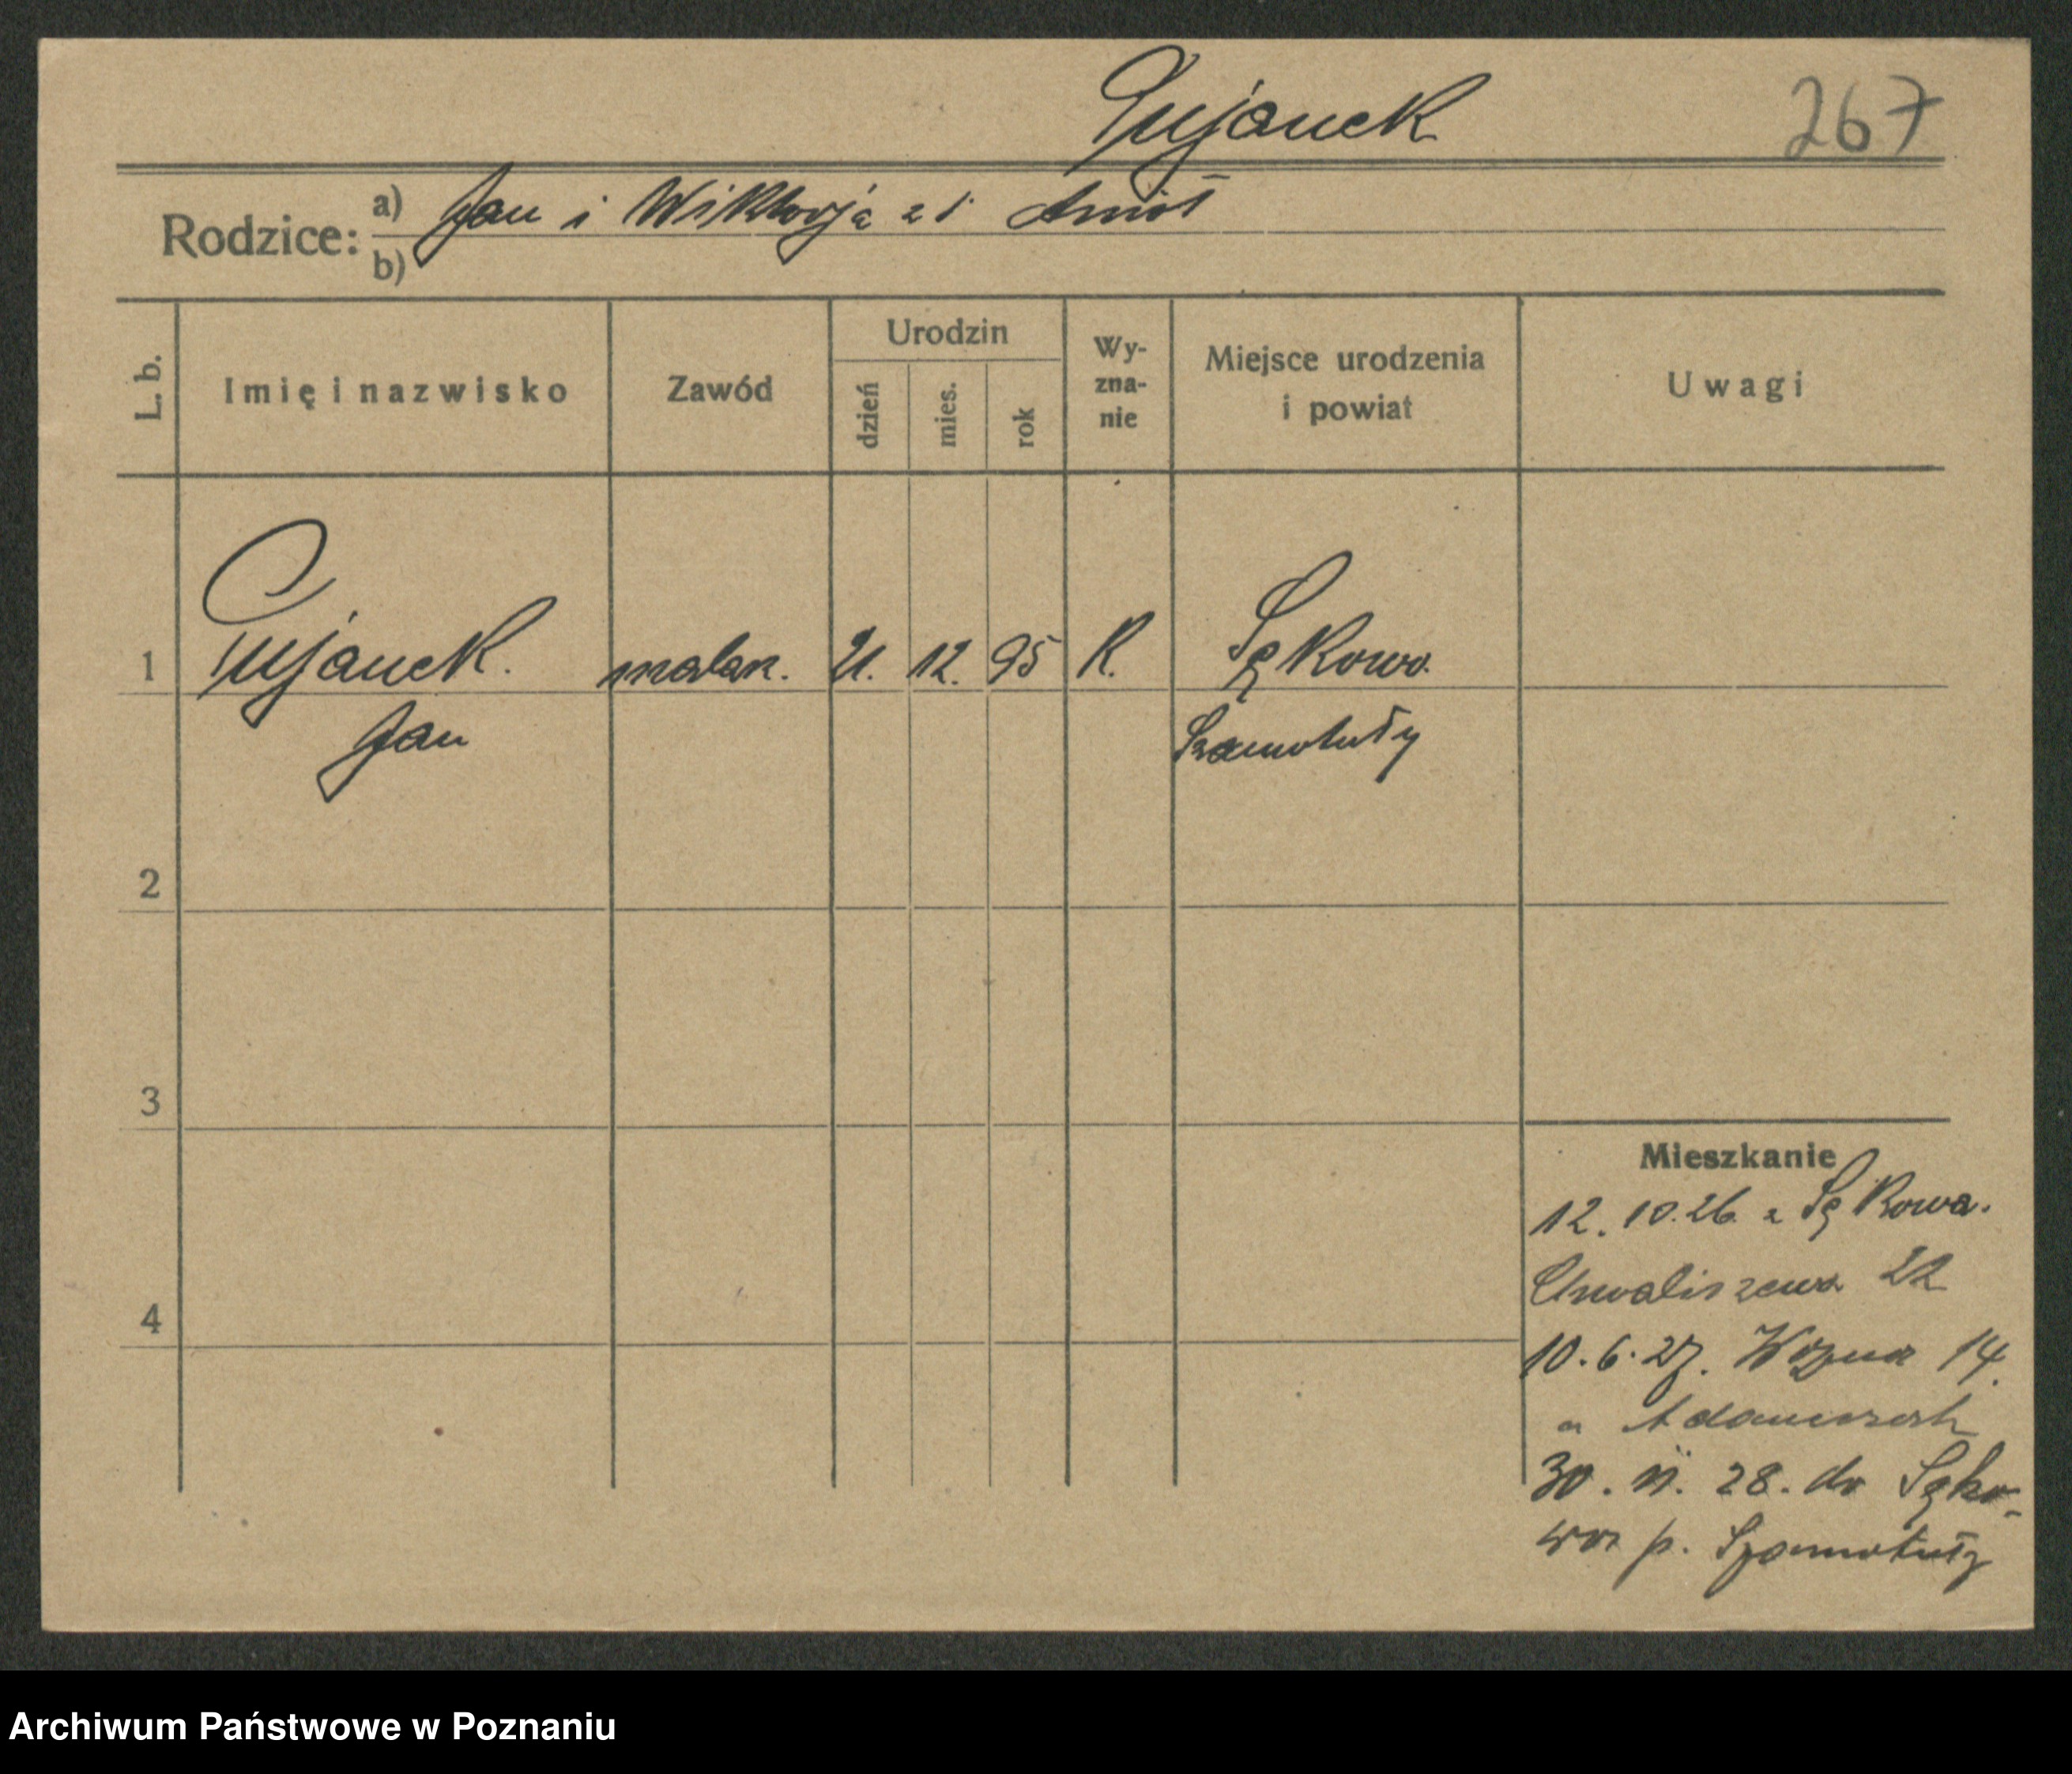 Pujanek 267
Rodzice: a) Jan i Wiktorja z d. Anioł
b)
L. b. Imię i nazwisko Zawód Urodzin dzień mies. rok Wy-zna-nie Miejsce urodzenia i powiat Uwagi
1 Pujanek. malarz. 21. 12. 95 K. Sękowo.
Jan Szamotuły
2
3
Mieszkanie
12. 10. 26. z Sękowa.
Chwaliszewo 22
4
10. 6. 27. Woźna 14.
u Adamczach
30. 11. 28. do Sęko-
wa p. Szamotuły
Archiwum Państwowe w Poznaniu